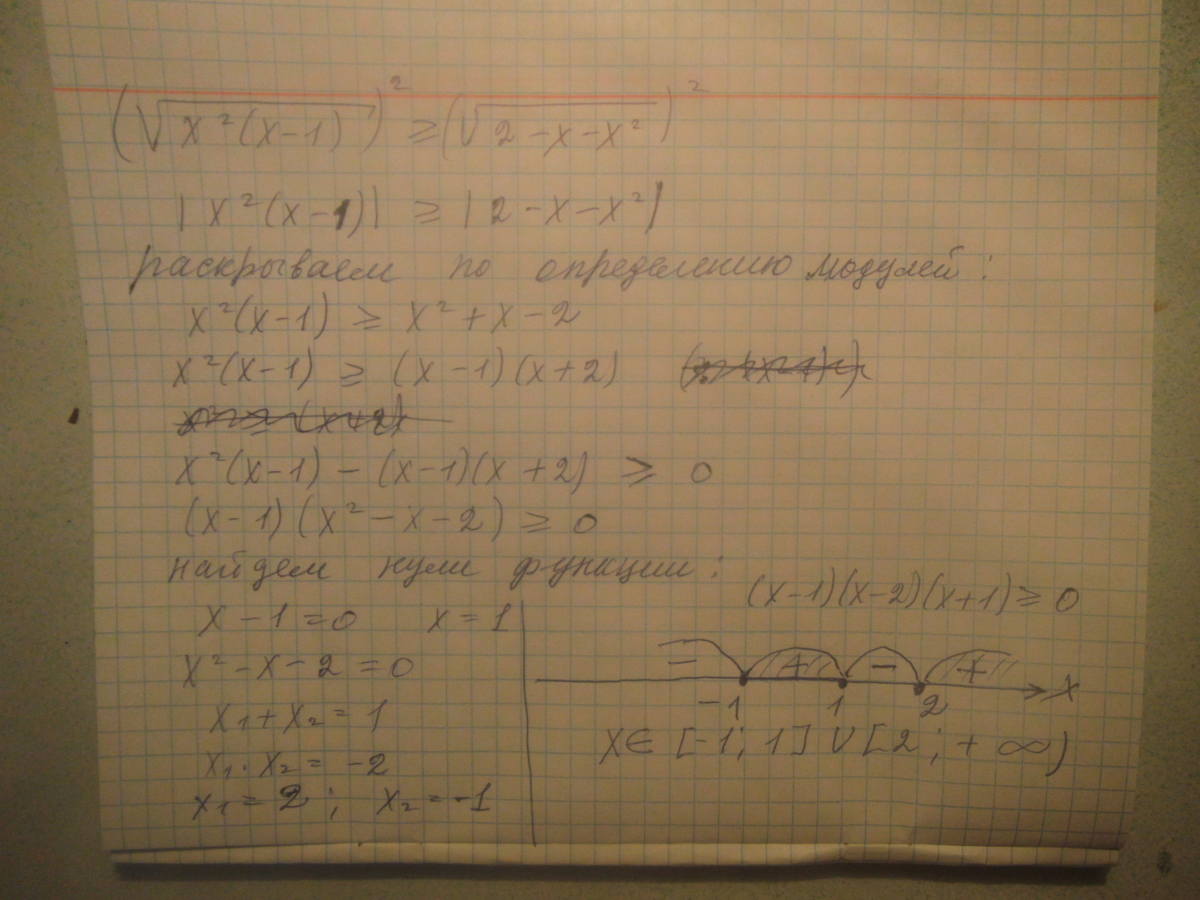 (√x²(x-1))² ≥ (√2-x-x²)²
|x²(x-1)| ≥ |2-x-x²|
раскрываем по определению модулей:
x²(x-1) ≥ x²+x-2
x²(x-1) ≥ (x-1)(x+2)
x²(x-1) - (x-1)(x+2) ≥ 0
(x-1)(x²-x-2) ≥ 0
найдем нули функции:
x-1=0 x=1
x²-x-2=0
x₁+x₂=1
x₁·x₂=-2
x₁=2; x₂=-1
(x-1)(x-2)(x+1)≥0
- + - +
-1 1 2 x
x∈[-1;1]∪[2;+∞)